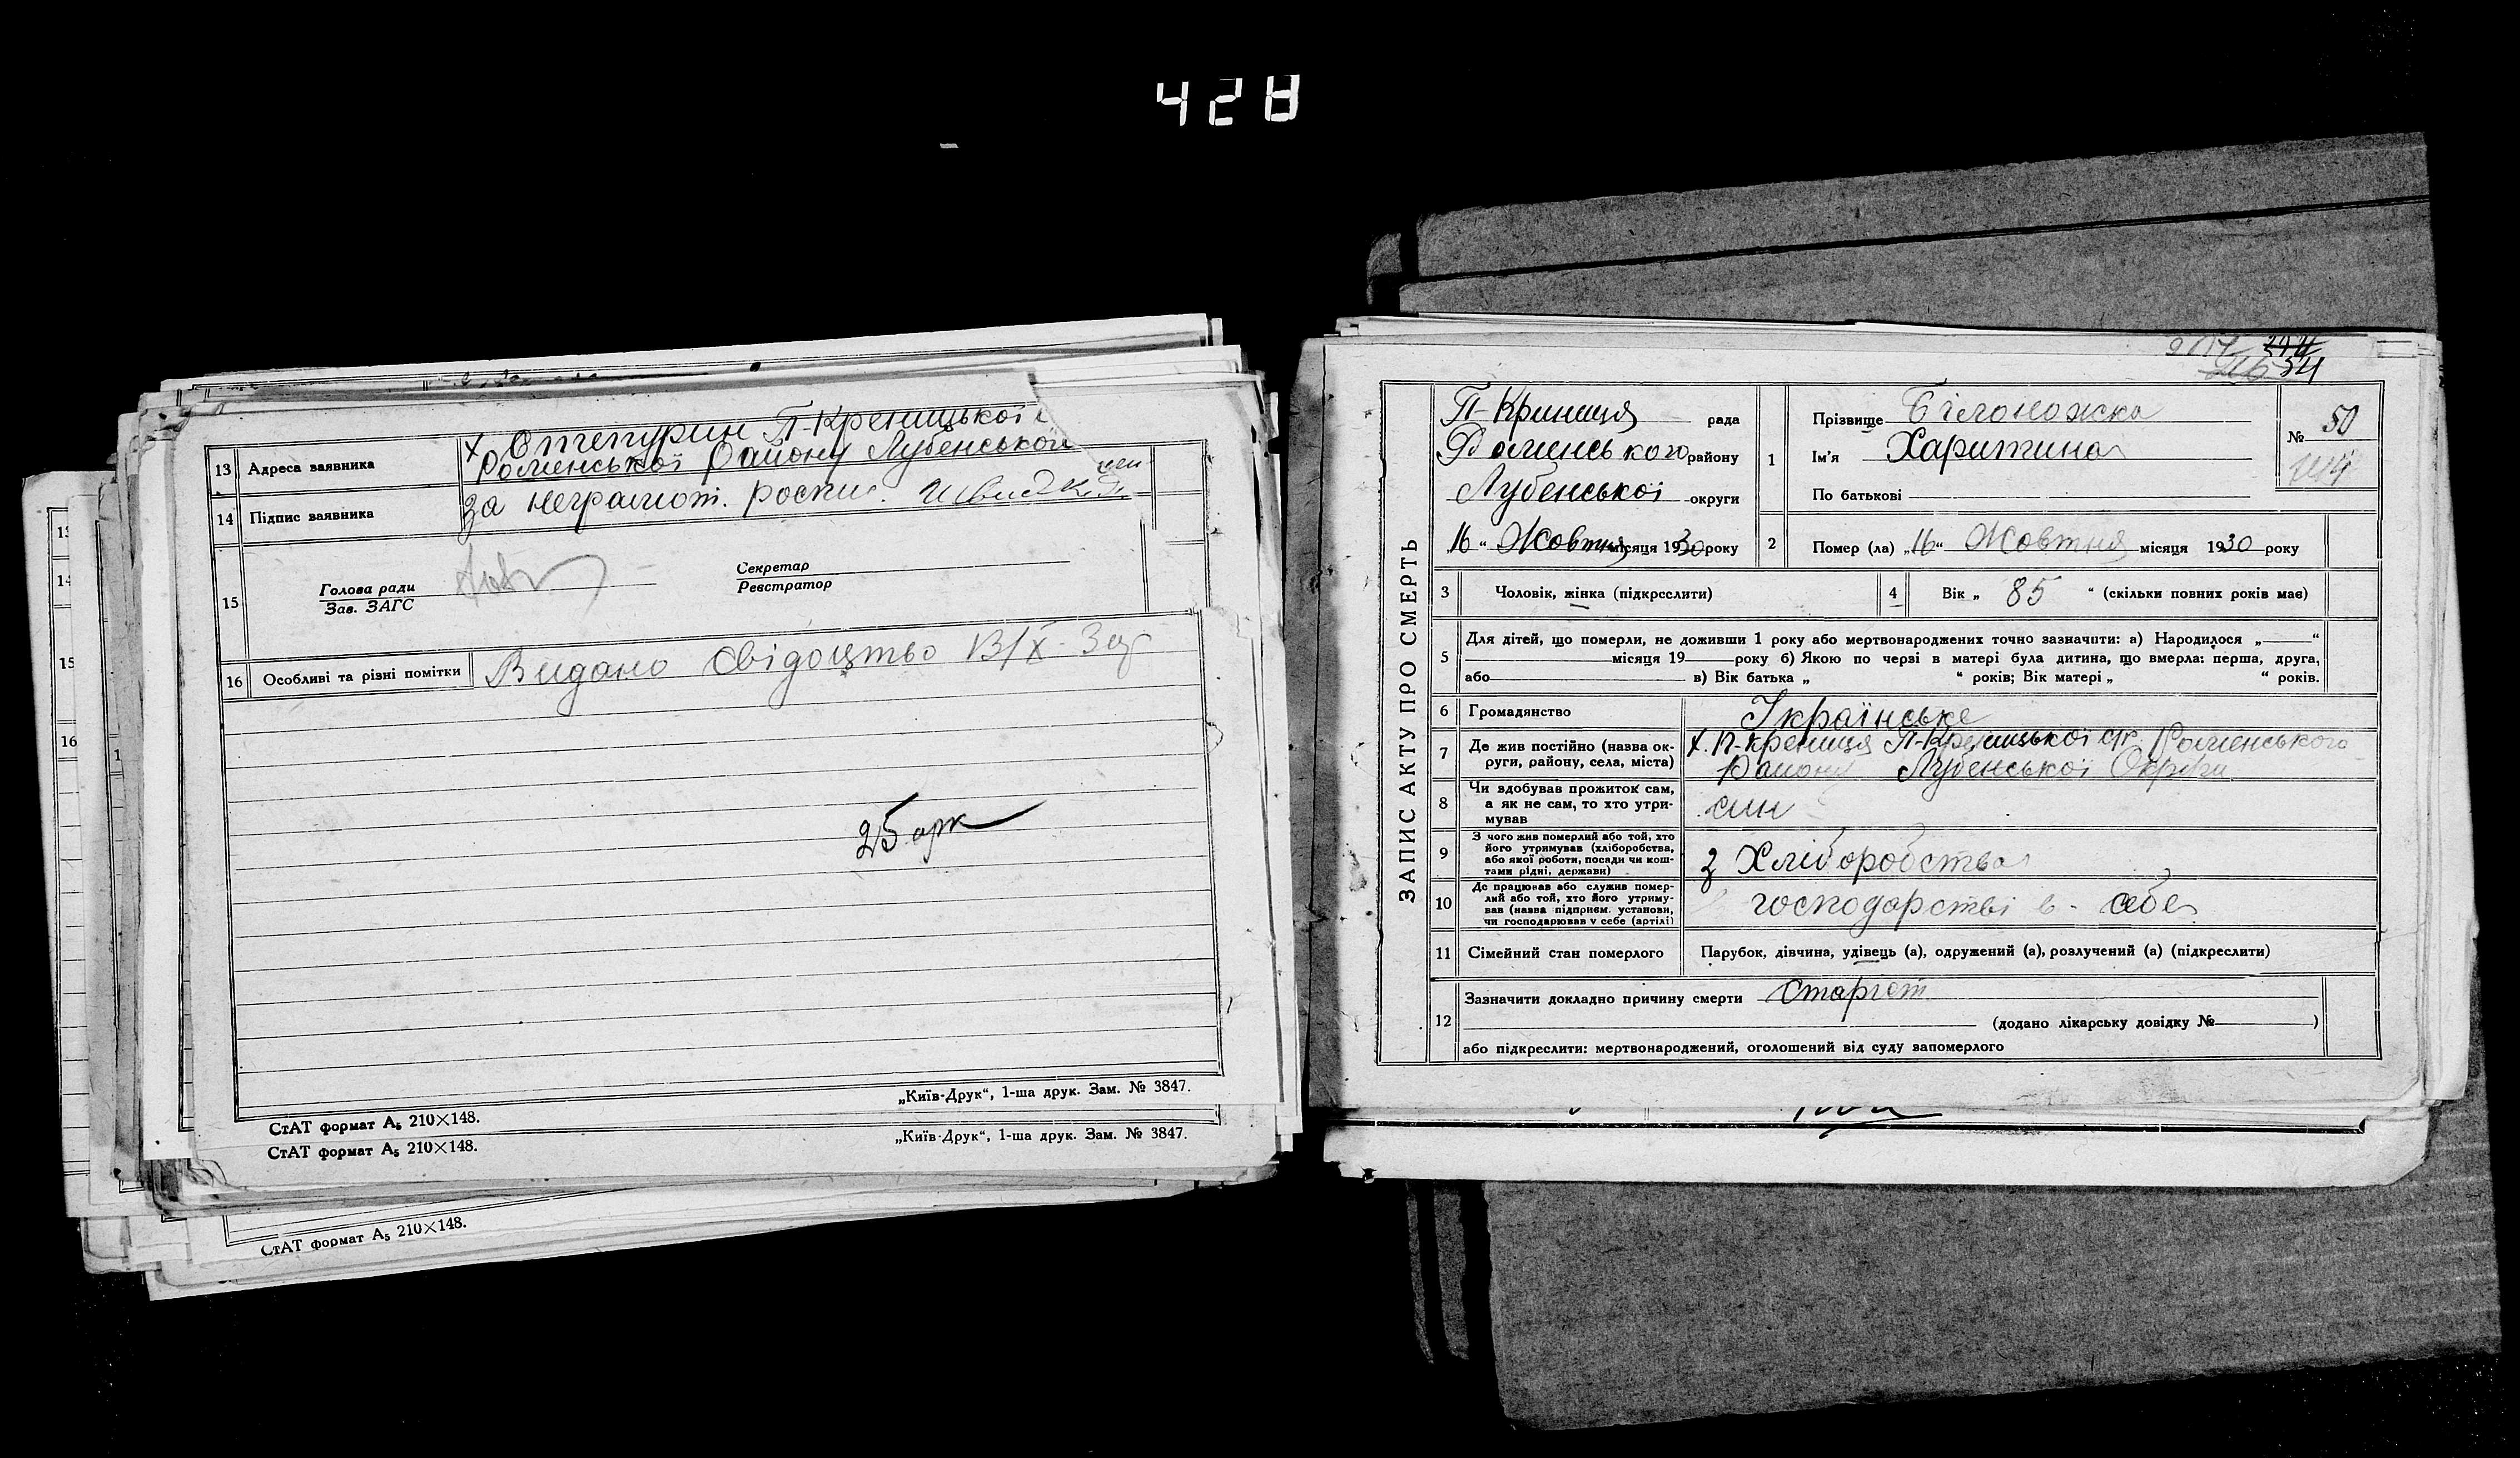 428
13 Адреса заявника х Степурин П-Креницької
Роменської Району Лубенської
14 Підпис заявника за неграмот. роспис.
15 Голова ради Секретар
Зав. ЗАГС Реєстратор
16 Особливі та різні помітки Видано свідоцтво
25 арк
„Київ-Друк“, 1-ша друк. Зам. № 3847.
СтАТ формат А₅ 210×148.
„Київ-Друк“, 1-ша друк. Зам. № 3847.
СтАТ формат А₅ 210×148.
СтАТ формат А₅ 210×148.
13
14
15
16
34
ЗАПИС АКТУ ПРО СМЕРТЬ
П-Криниця рада
Роменського району
Лубенської округи
„16“ Жовтня місяця 1930 року
1 Прізвище Білоножка
Ім'я Харитина
По батькові
№ 50
2 Помер (ла) „16“ Жовтня місяця 1930 року
3 Чоловік, жінка (підкреслити) 4 Вік „ 85 “ (скільки повних років має)
5 Для дітей, що померли, не доживши 1 року або мертвонароджених точно зазначити: а) Народилося „ “
місяця 19 року б) Якою по черзі в матері була дитина, що вмерла: перша, друга,
або в) Вік батька „ “ років; Вік матері „ “ років.
6 Громадянство Українське
7 Де жив постійно (назва ок-
руги, району, села, міста)
х. П-Крениця П-Креницької с/р. Роменського
Району Лубенської Округи
8 Чи здобував прожиток сам,
а як не сам, то хто утри-
мував
син
9 З чого жив померлий або той, хто
його утримував (хліборобства,
або якої роботи, посади чи кош-
тами рідні, держави)
з Хліборобства
10 Де працював або служив помер-
лий або той, хто його утриму-
вав (назва підприєм. установи,
чи господарював у себе (артілі)
господарстві в- себе
11 Сімейний стан померлого Парубок, дівчина, удівець (а), одружений (а), розлучений (а) (підкреслити)
12 Зазначити докладно причину смерти Старість
(додано лікарську довідку № )
або підкреслити: мертвонароджений, оголошений від суду запомерлого